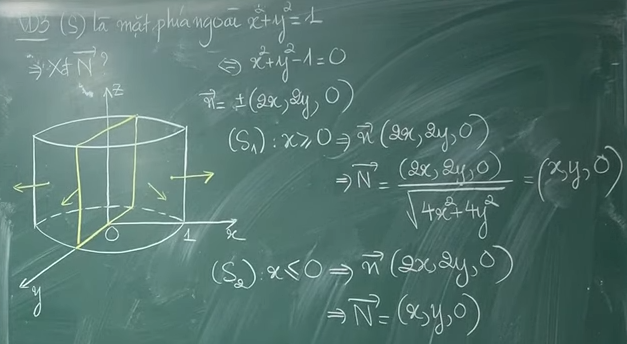 VD3 (S) là mặt phía ngoài x²+y²=1
⇒ Xđ N⃗ ?
⇔ x²+y²-1=0
n⃗ = ±(2x, 2y, 0)
(S₁): x ≥ 0 ⇒ n⃗ (2x, 2y, 0)
⇒ N⃗ = (2x, 2y, 0) / √(4x²+4y²) = (x, y, 0)
(S₂): x ≤ 0 ⇒ n⃗ (2x, 2y, 0)
⇒ N⃗ = (x, y, 0)
z
0
1
x
y